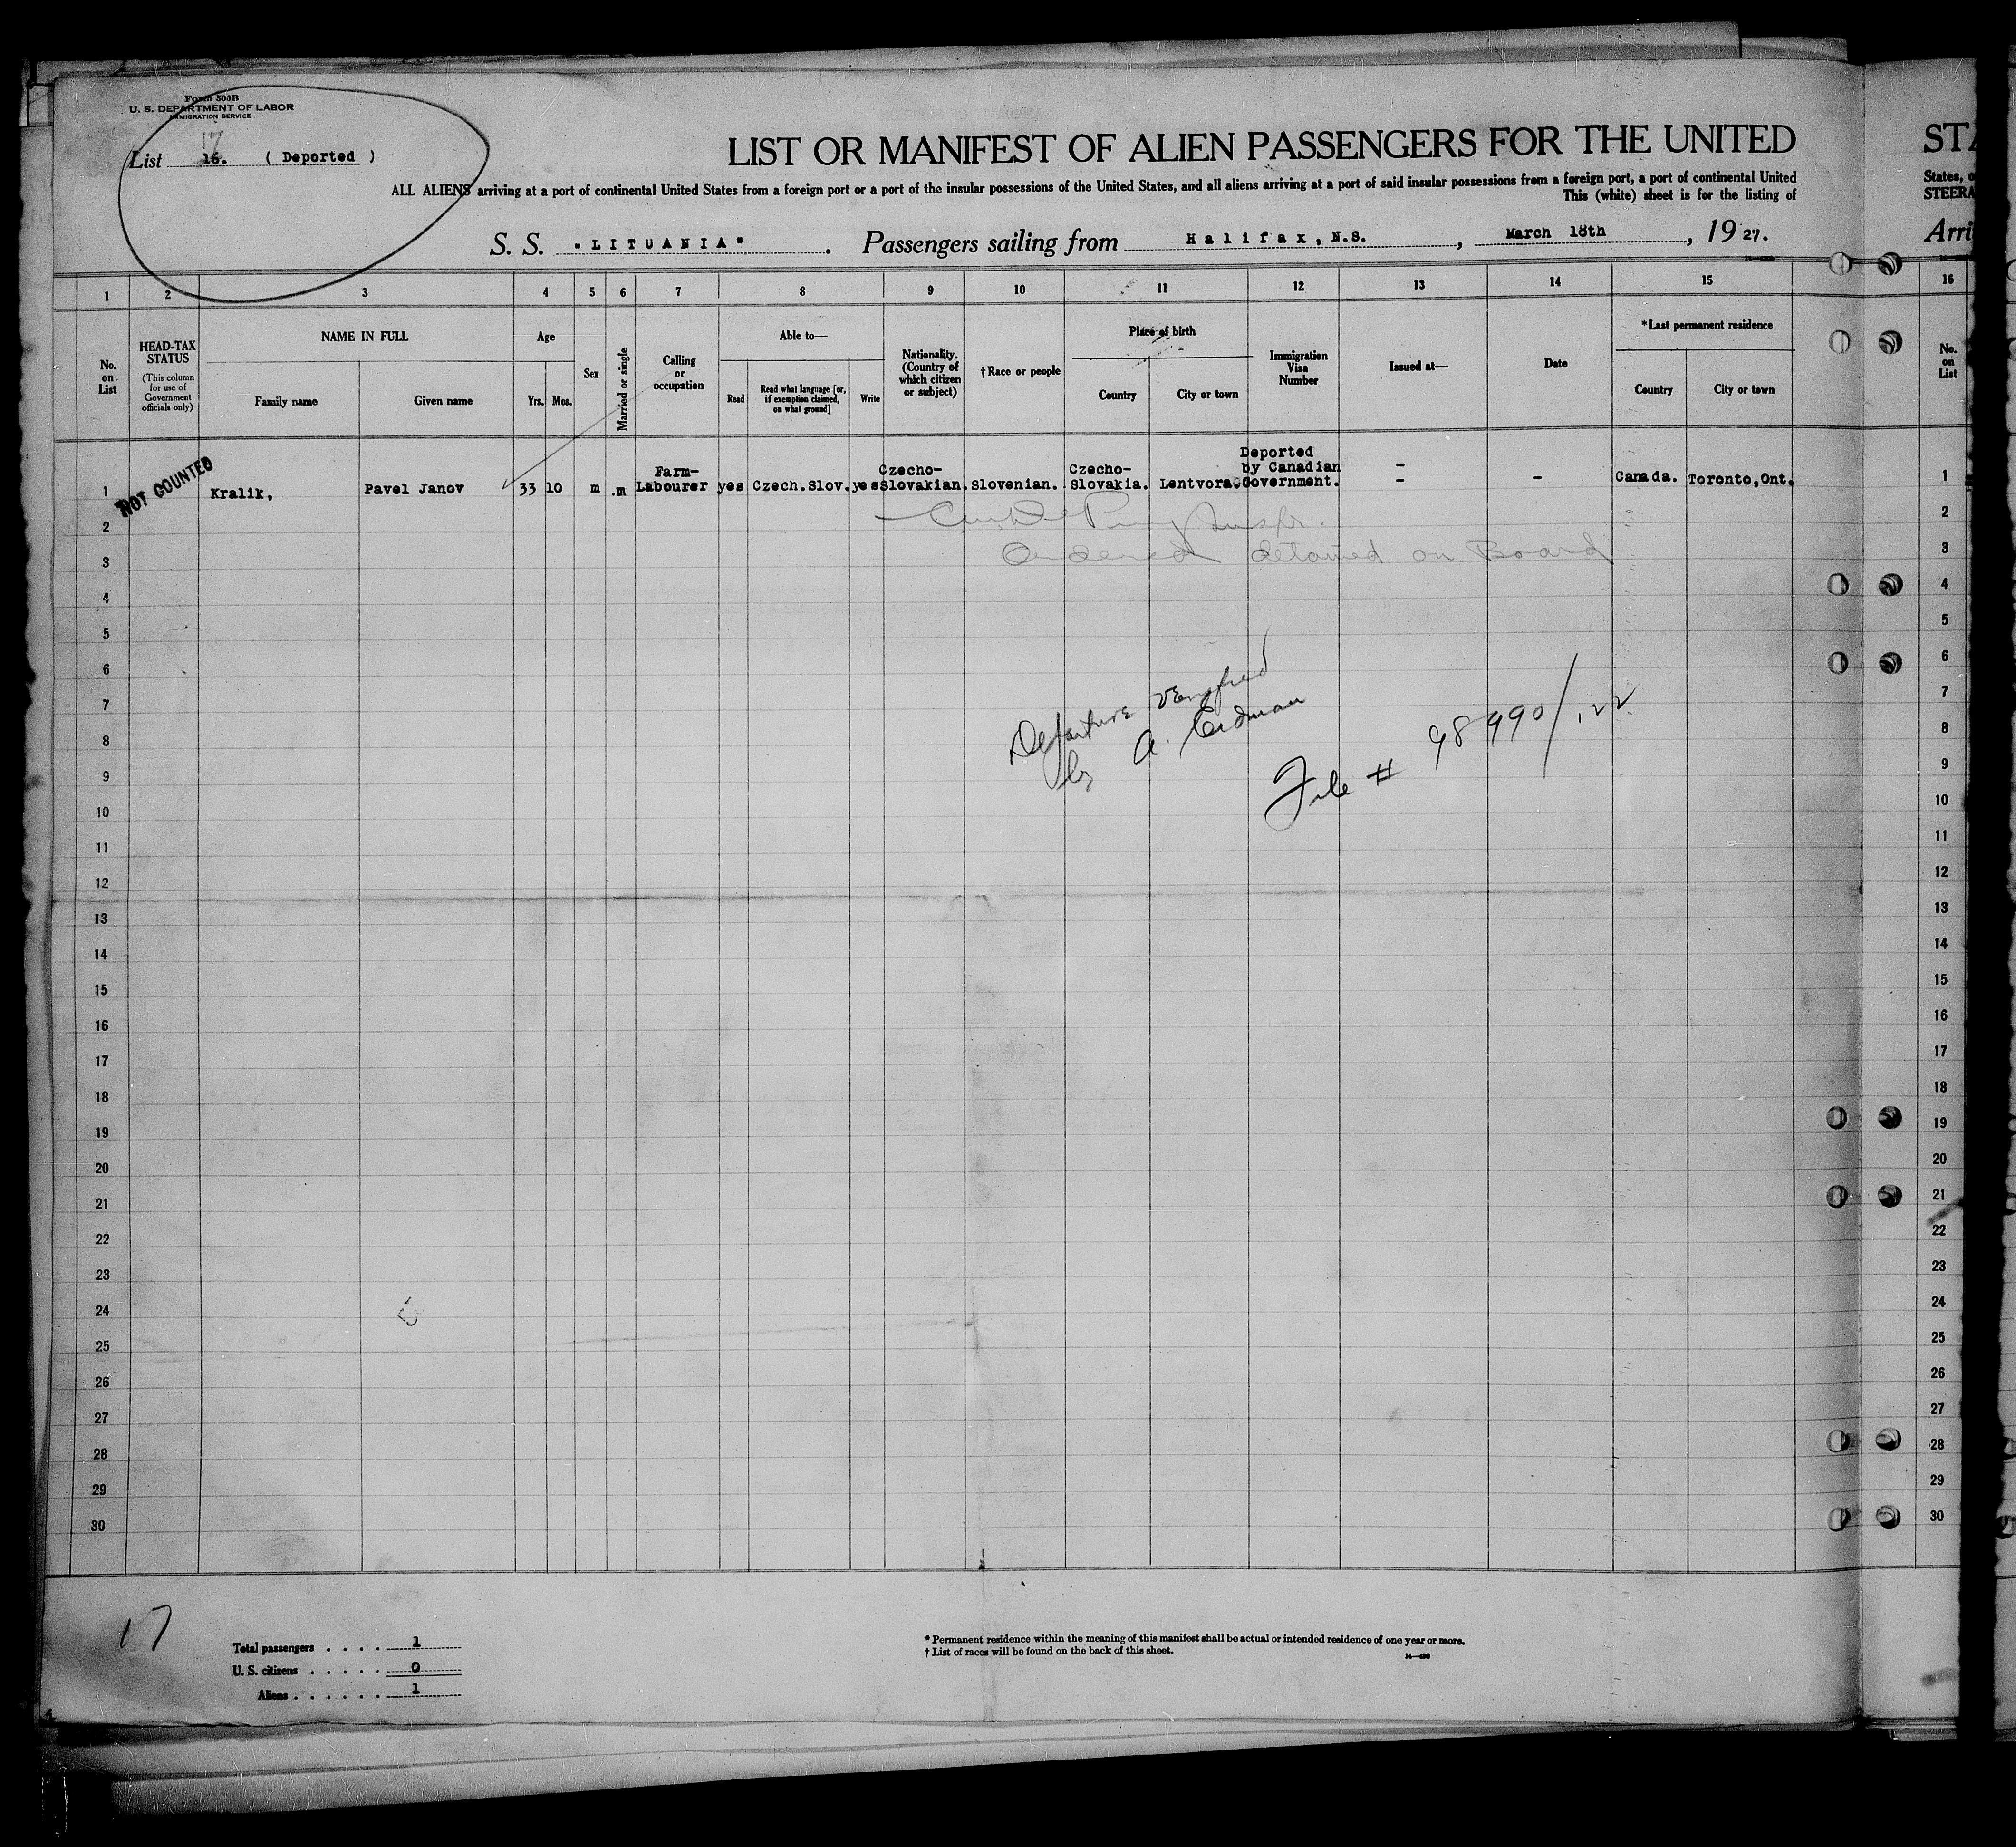 Form 500B
U. S. DEPARTMENT OF LABOR
IMMIGRATION SERVICE
17
List 16. ( Deported )
LIST OR MANIFEST OF ALIEN PASSENGERS FOR THE UNITED
STA
ALL ALIENS arriving at a port of continental United States from a foreign port or a port of the insular possessions of the United States, and all aliens arriving at a port of said insular possessions from a foreign port, a port of continental United
States, o
This (white) sheet is for the listing of
STEERA
S. S. "LITUANIA". Passengers sailing from Halifax, N.S., March 18th, 1927.
Arri
1 2 3 4 5 6 7 8 9 10 11 12 13 14 15 16
No. on List
HEAD-TAX STATUS
(This column for use of Government officials only)
NAME IN FULL
Family name
Given name
Age
Yrs. Mos.
Sex
Married or single
Calling or occupation
Able to—
Read
Read what language [or, if exemption claimed, on what ground]
Write
Nationality. (Country of which citizen or subject)
†Race or people
Place of birth
Country
City or town
Immigration Visa Number
Issued at—
Date
*Last permanent residence
Country
City or town
No. on List
NOT COUNTED
1 Kralik, Pavel Janov 33 10 m m Farm-Labourer yes Czech.Slov. yes Czecho-Slovakian. Slovenian. Czecho-Slovakia. Lentvora. Deported by Canadian Government. - - - Canada. Toronto,Ont. 1
2 2
Ordered detained on Board
3 3
4 4
5 5
6 6
7 7
8 8
9 9
10 10
11 11
12 12
13 13
14 14
15 15
16 16
17 17
18 18
19 19
20 20
21 21
22 22
23 23
24 24
25 25
26 26
27 27
28 28
29 29
30 30
Departure verified
by A. Erdman
File # 98990/122
17
Total passengers . . . . 1
U. S. citizens . . . . . 0
Aliens . . . . . . 1
* Permanent residence within the meaning of this manifest shall be actual or intended residence of one year or more.
† List of races will be found on the back of this sheet.